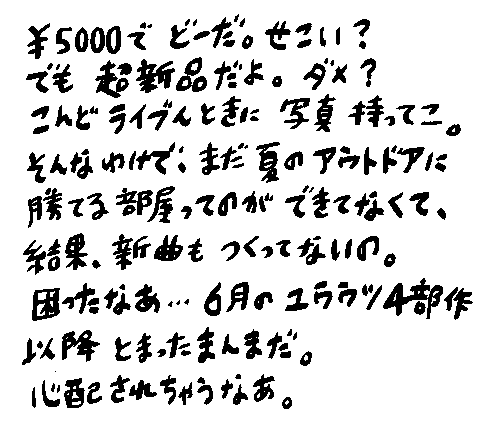 ¥5000で どーだ。せこい？
でも 超新品だよ。ダメ？
こんどライブんときに 写真 持ってこ。
そんなわけで、まだ夏のアウトドアに
勝てる部屋ってのが できてなくて、
結果、新曲も つくってないの。
困ったなあ… 6月のユウウツ4部作
以降 とまったまんまだ。
心配されちゃうなあ。